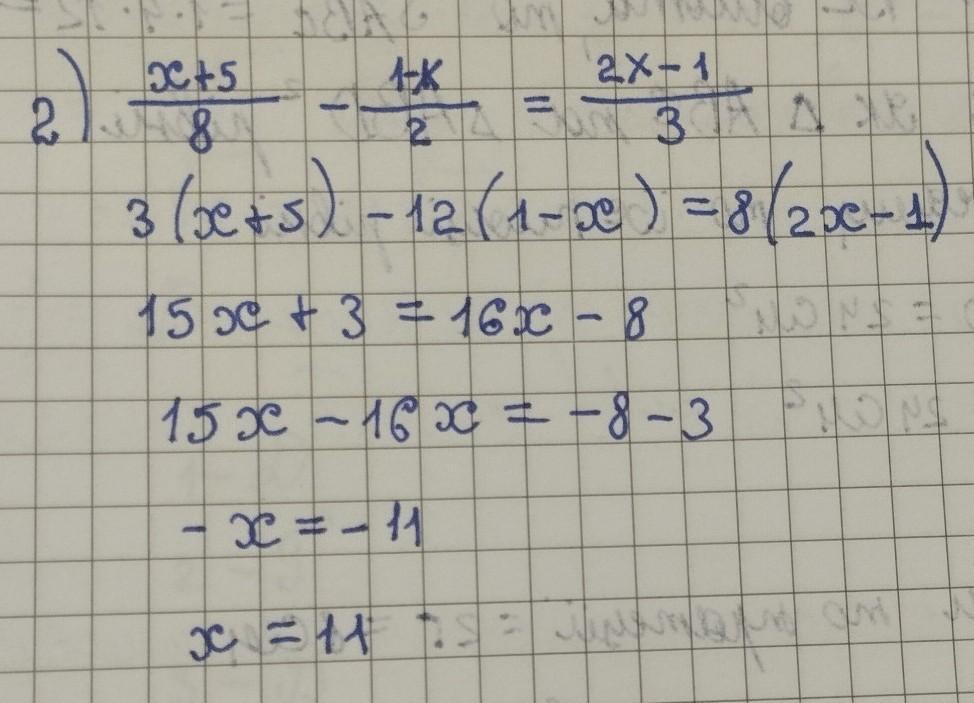 2) (x+5)/8 - (1-x)/2 = (2x-1)/3
3(x+5) - 12(1-x) = 8(2x-1)
15x + 3 = 16x - 8
15x - 16x = -8 - 3
- x = - 11
x = 11